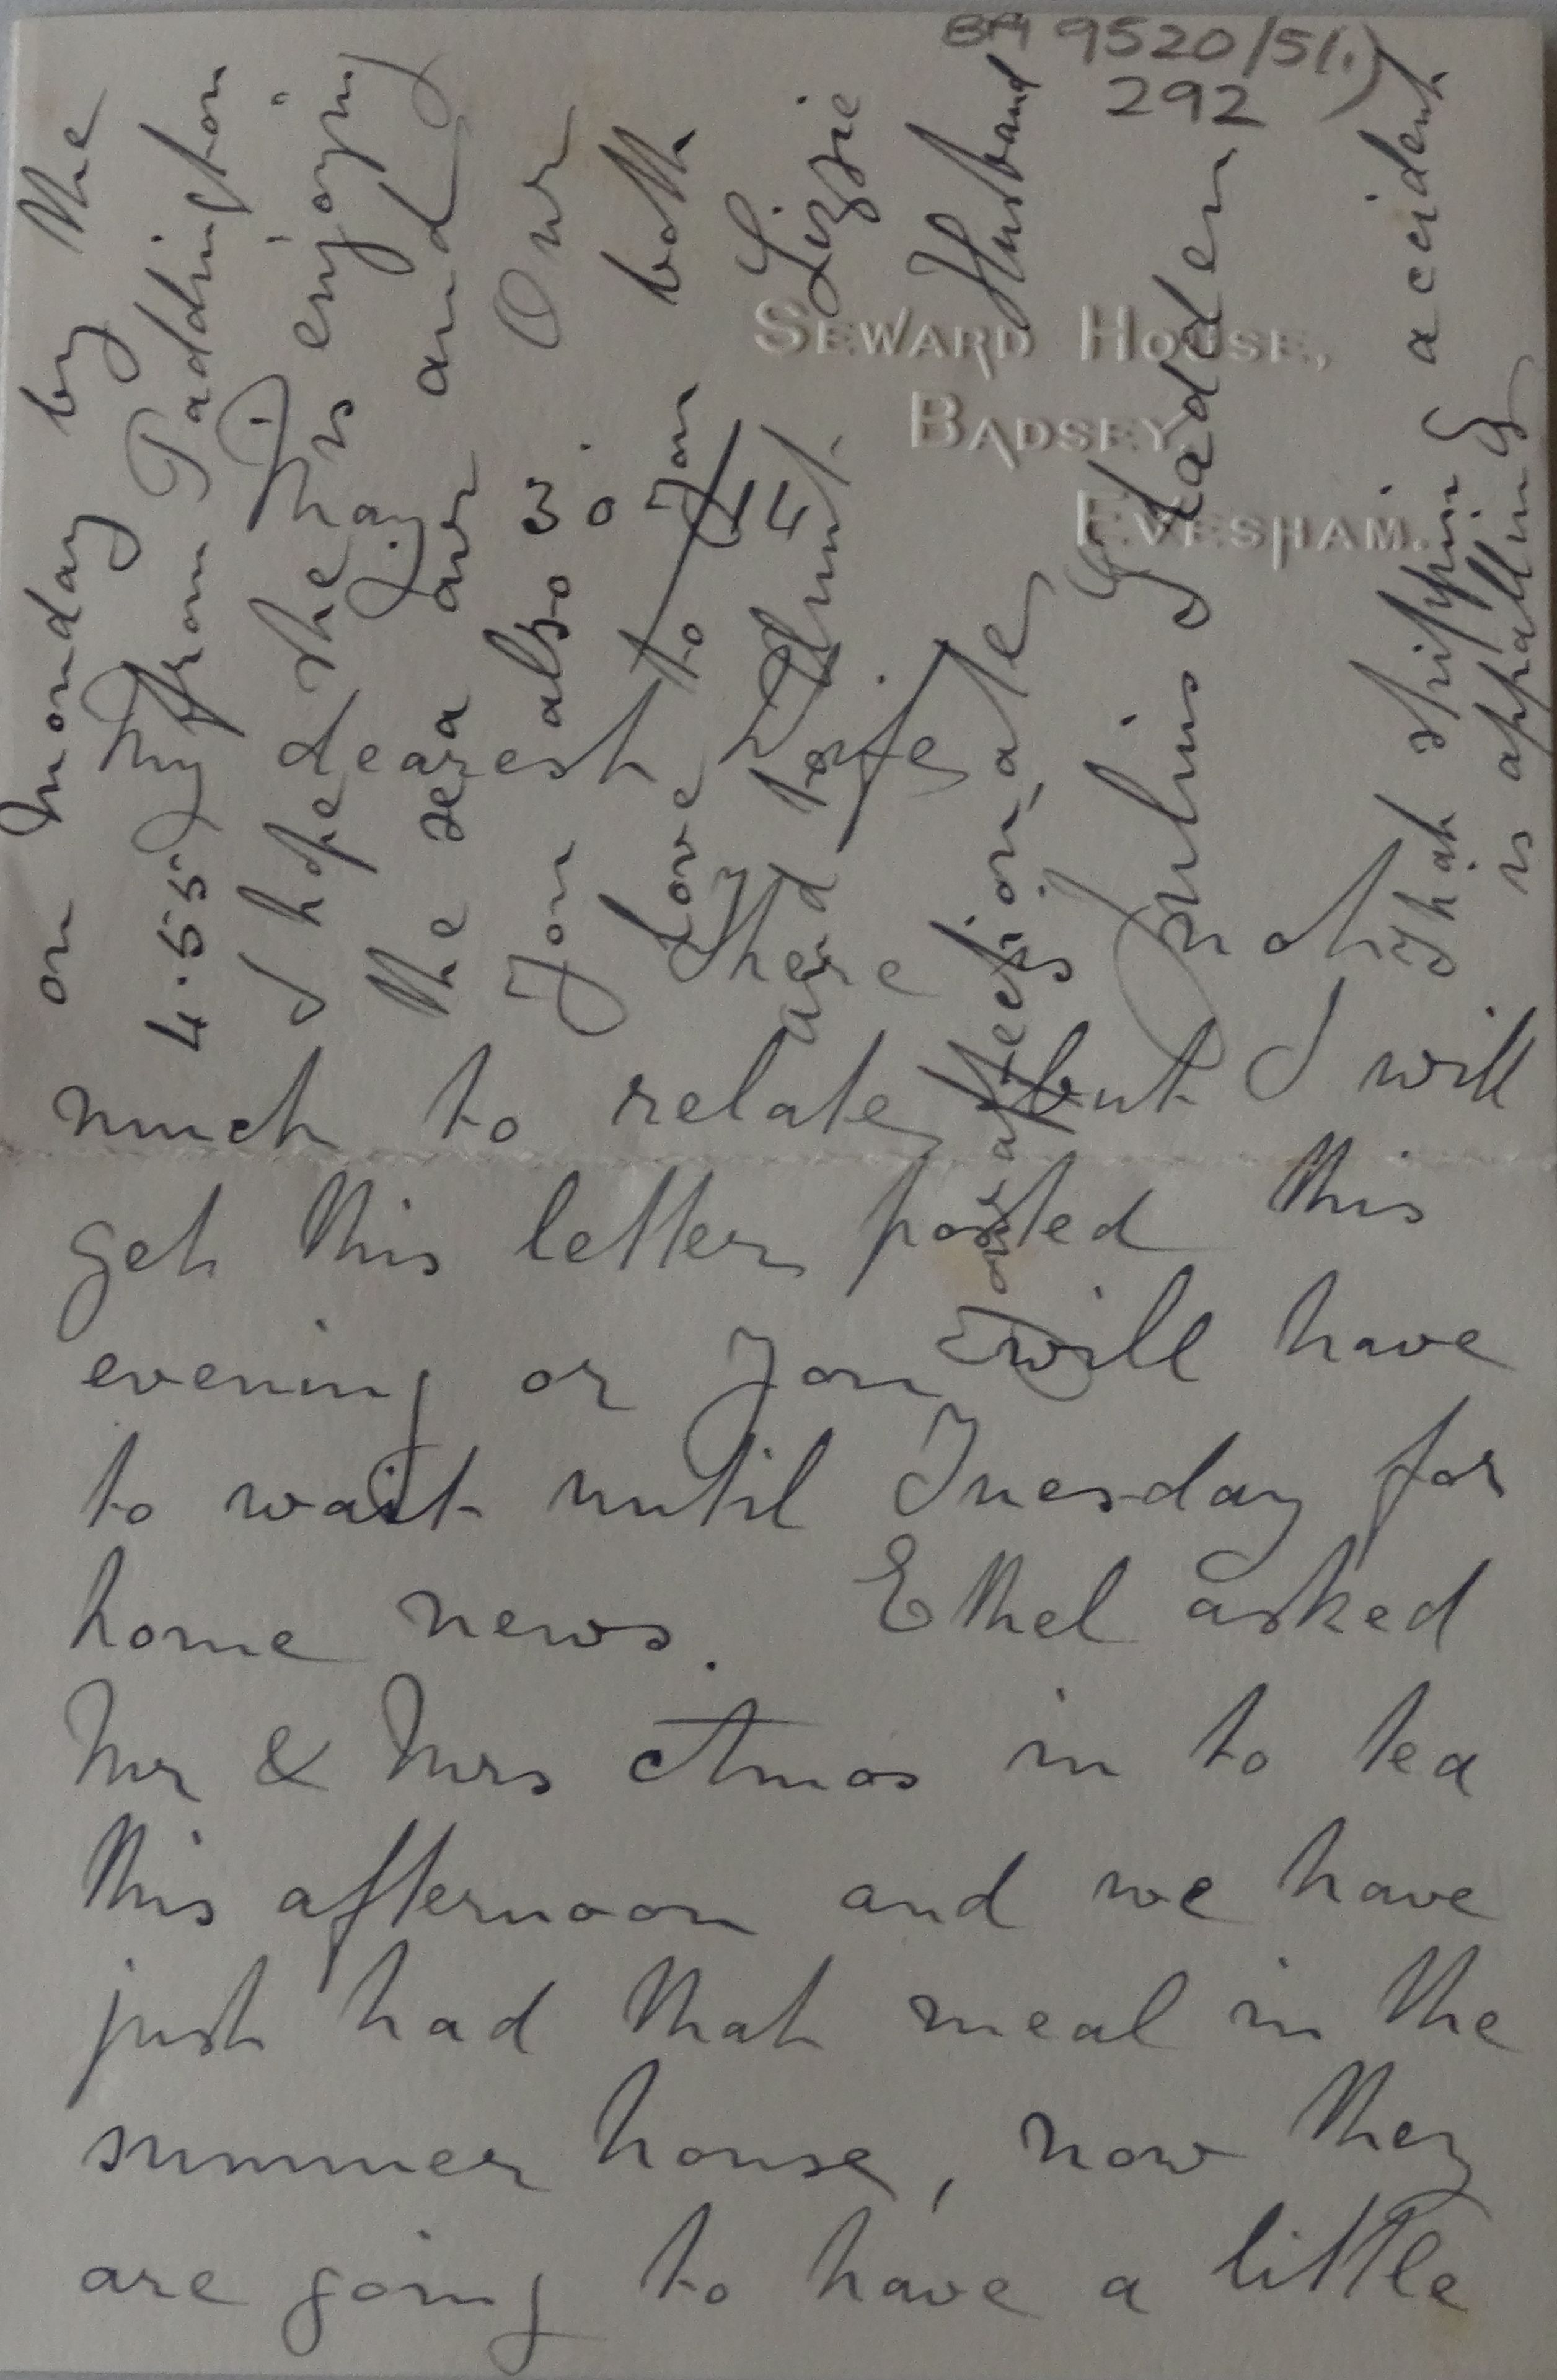 BA 9520/51.)
292
SEWARD HOUSE,
BADSEY,
EVESHAM.
May 30./14
My dearest Wife
There is not
much to relate, but I will
get this letter posted this
evening or you will have
to wait until Tuesday for
home news. Ethel asked
Mr & Mrs Amos in to tea
this afternoon and we have
just had that meal in the
summer house, now they
are going to have a little
on Monday by the
4.55 from Paddington
I hope she is enjoying
the sea air and
you also. Our
love to you both
and to Aunt. Lizzie
Your affectionate Husband
Julius Sladden
That shipping accident
is appalling